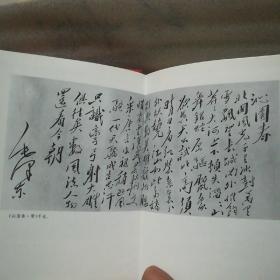 沁园春
北国风光千里冰封万里
雪飘望长城内外惟余
莽莽大河上下顿失滔滔山
舞银蛇原驰腊象
欲与天公试比高须
晴日看红装素裹分外
妖娆江山如此多娇
引无数英雄竞折腰
惜秦皇汉武略输文
采唐宗宋祖稍逊风骚
一代天骄成吉思汗
只识弯弓射大雕
俱往矣数风流人物
还看今朝
毛泽东
《沁园春·雪》手迹。